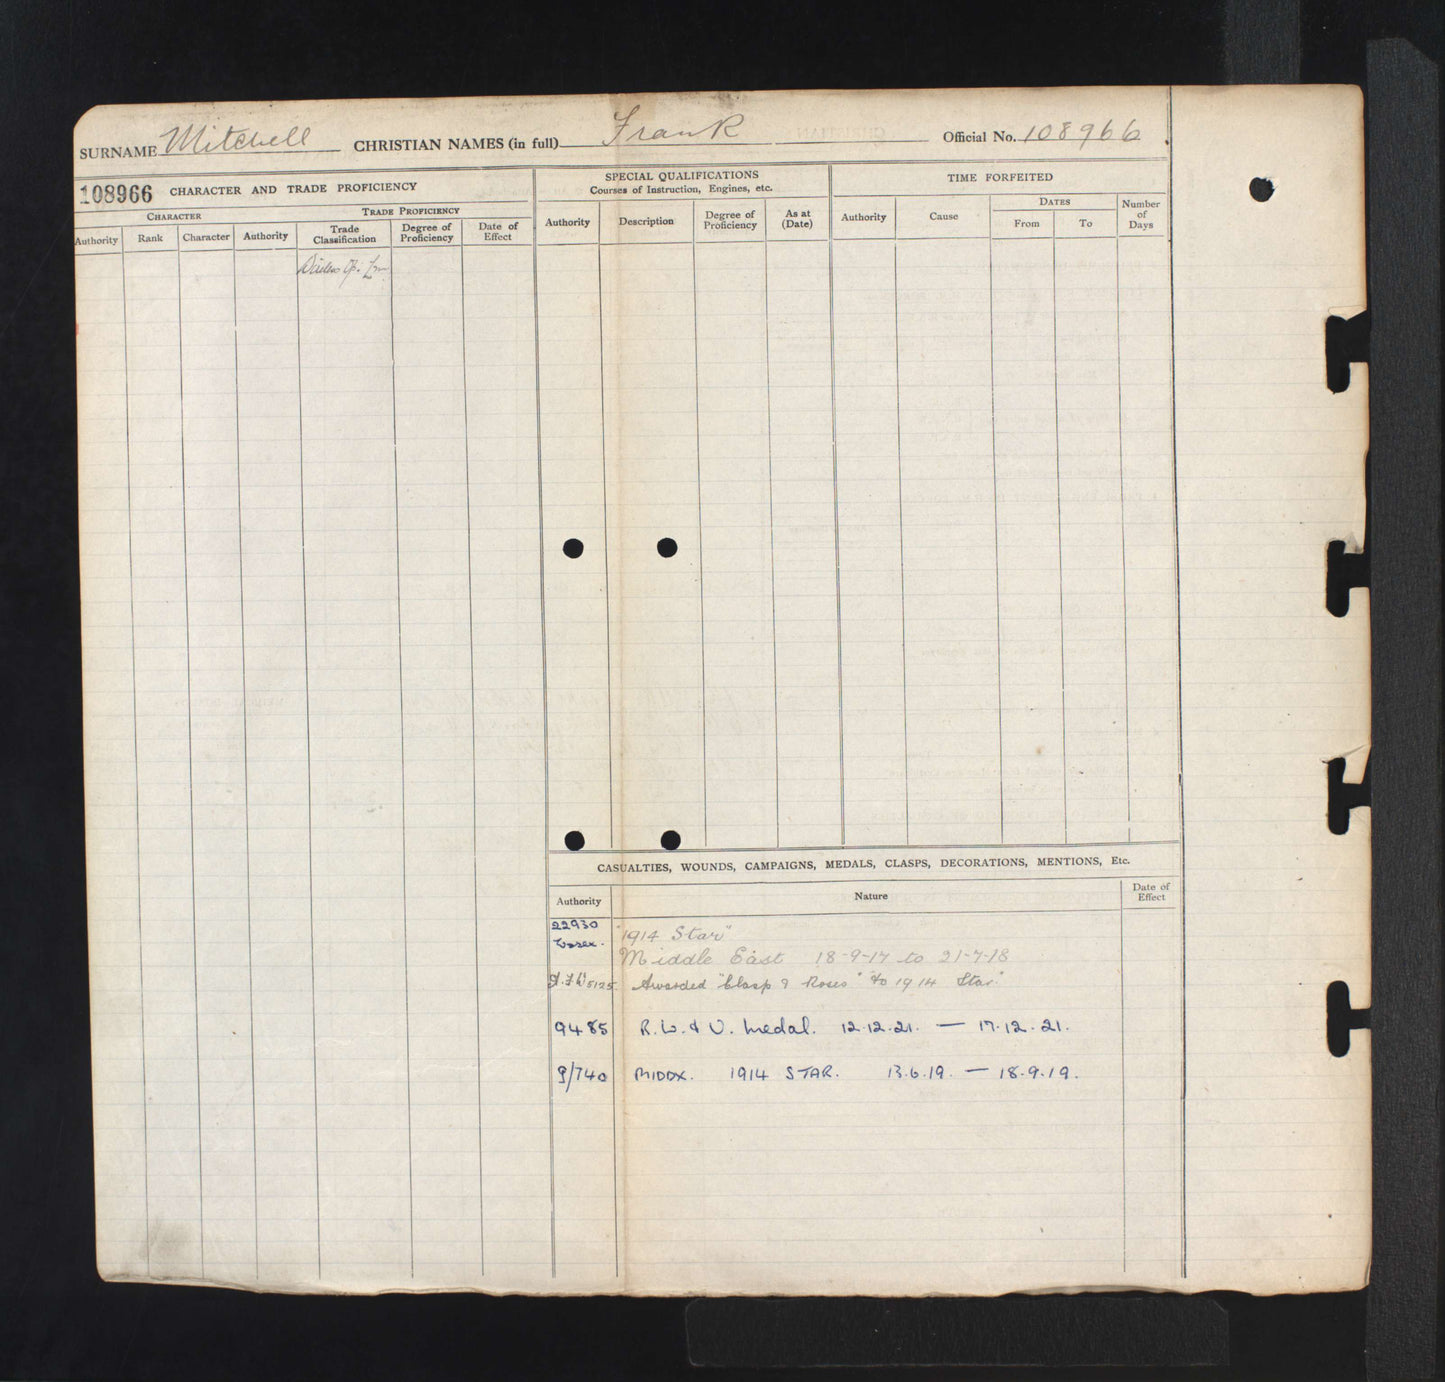 SURNAME Mitchell CHRISTIAN NAMES (in full) Frank Official No. 108966
108966 CHARACTER AND TRADE PROFICIENCY
SPECIAL QUALIFICATIONS
Courses of Instruction, Engines, etc.
TIME FORFEITED
CHARACTER TRADE PROFICIENCY
Authority Rank Character Authority Trade Classification Degree of Proficiency Date of Effect
Authority Description Degree of Proficiency As at (Date)
Authority Cause DATES From To Number of Days
CASUALTIES, WOUNDS, CAMPAIGNS, MEDALS, CLASPS, DECORATIONS, MENTIONS, Etc.
Authority Nature Date of Effect
22930 "1914 Star"
Essex.
Middle East 18-9-17 to 21-7-18
5125 Awarded "Clasp & Roses" to 1914 Star"
9485 R.W. & V. Medal. 12.12.21. — 17.12.21.
9/740 MIDDX. 1914 STAR. 13.6.19. — 18.9.19.